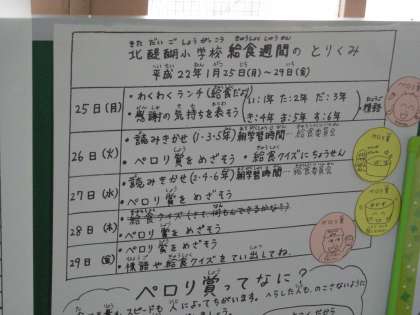 北醍醐小学校 給食週間のとりくみ
平成22年1月25日(月)〜29日(金)
25日(月)
・わくわくランチ(給食だより)
・感謝の気持ちを表そう
い:1年 た:2年 だ:3年
き:4年 ま:5年 す:6年
標語
26日(火)
・読みきかせ(1・3・5年)朝学習時間…給食委員会
・ペロリ賞をめざそう ・給食クイズにちょうせん
27日(水)
・読みきかせ(2・4・6年)朝学習時間…給食委員会
・ペロリ賞をめざそう
28日(木)
・ペロリ賞をめざそう
29日(金)
・ペロリ賞をめざそう
・標語や給食クイズをてい出してね。
ペロリ賞ってなに?
スピードも人によってちがいます。
へらした人も、のこさないように
ペロリ賞